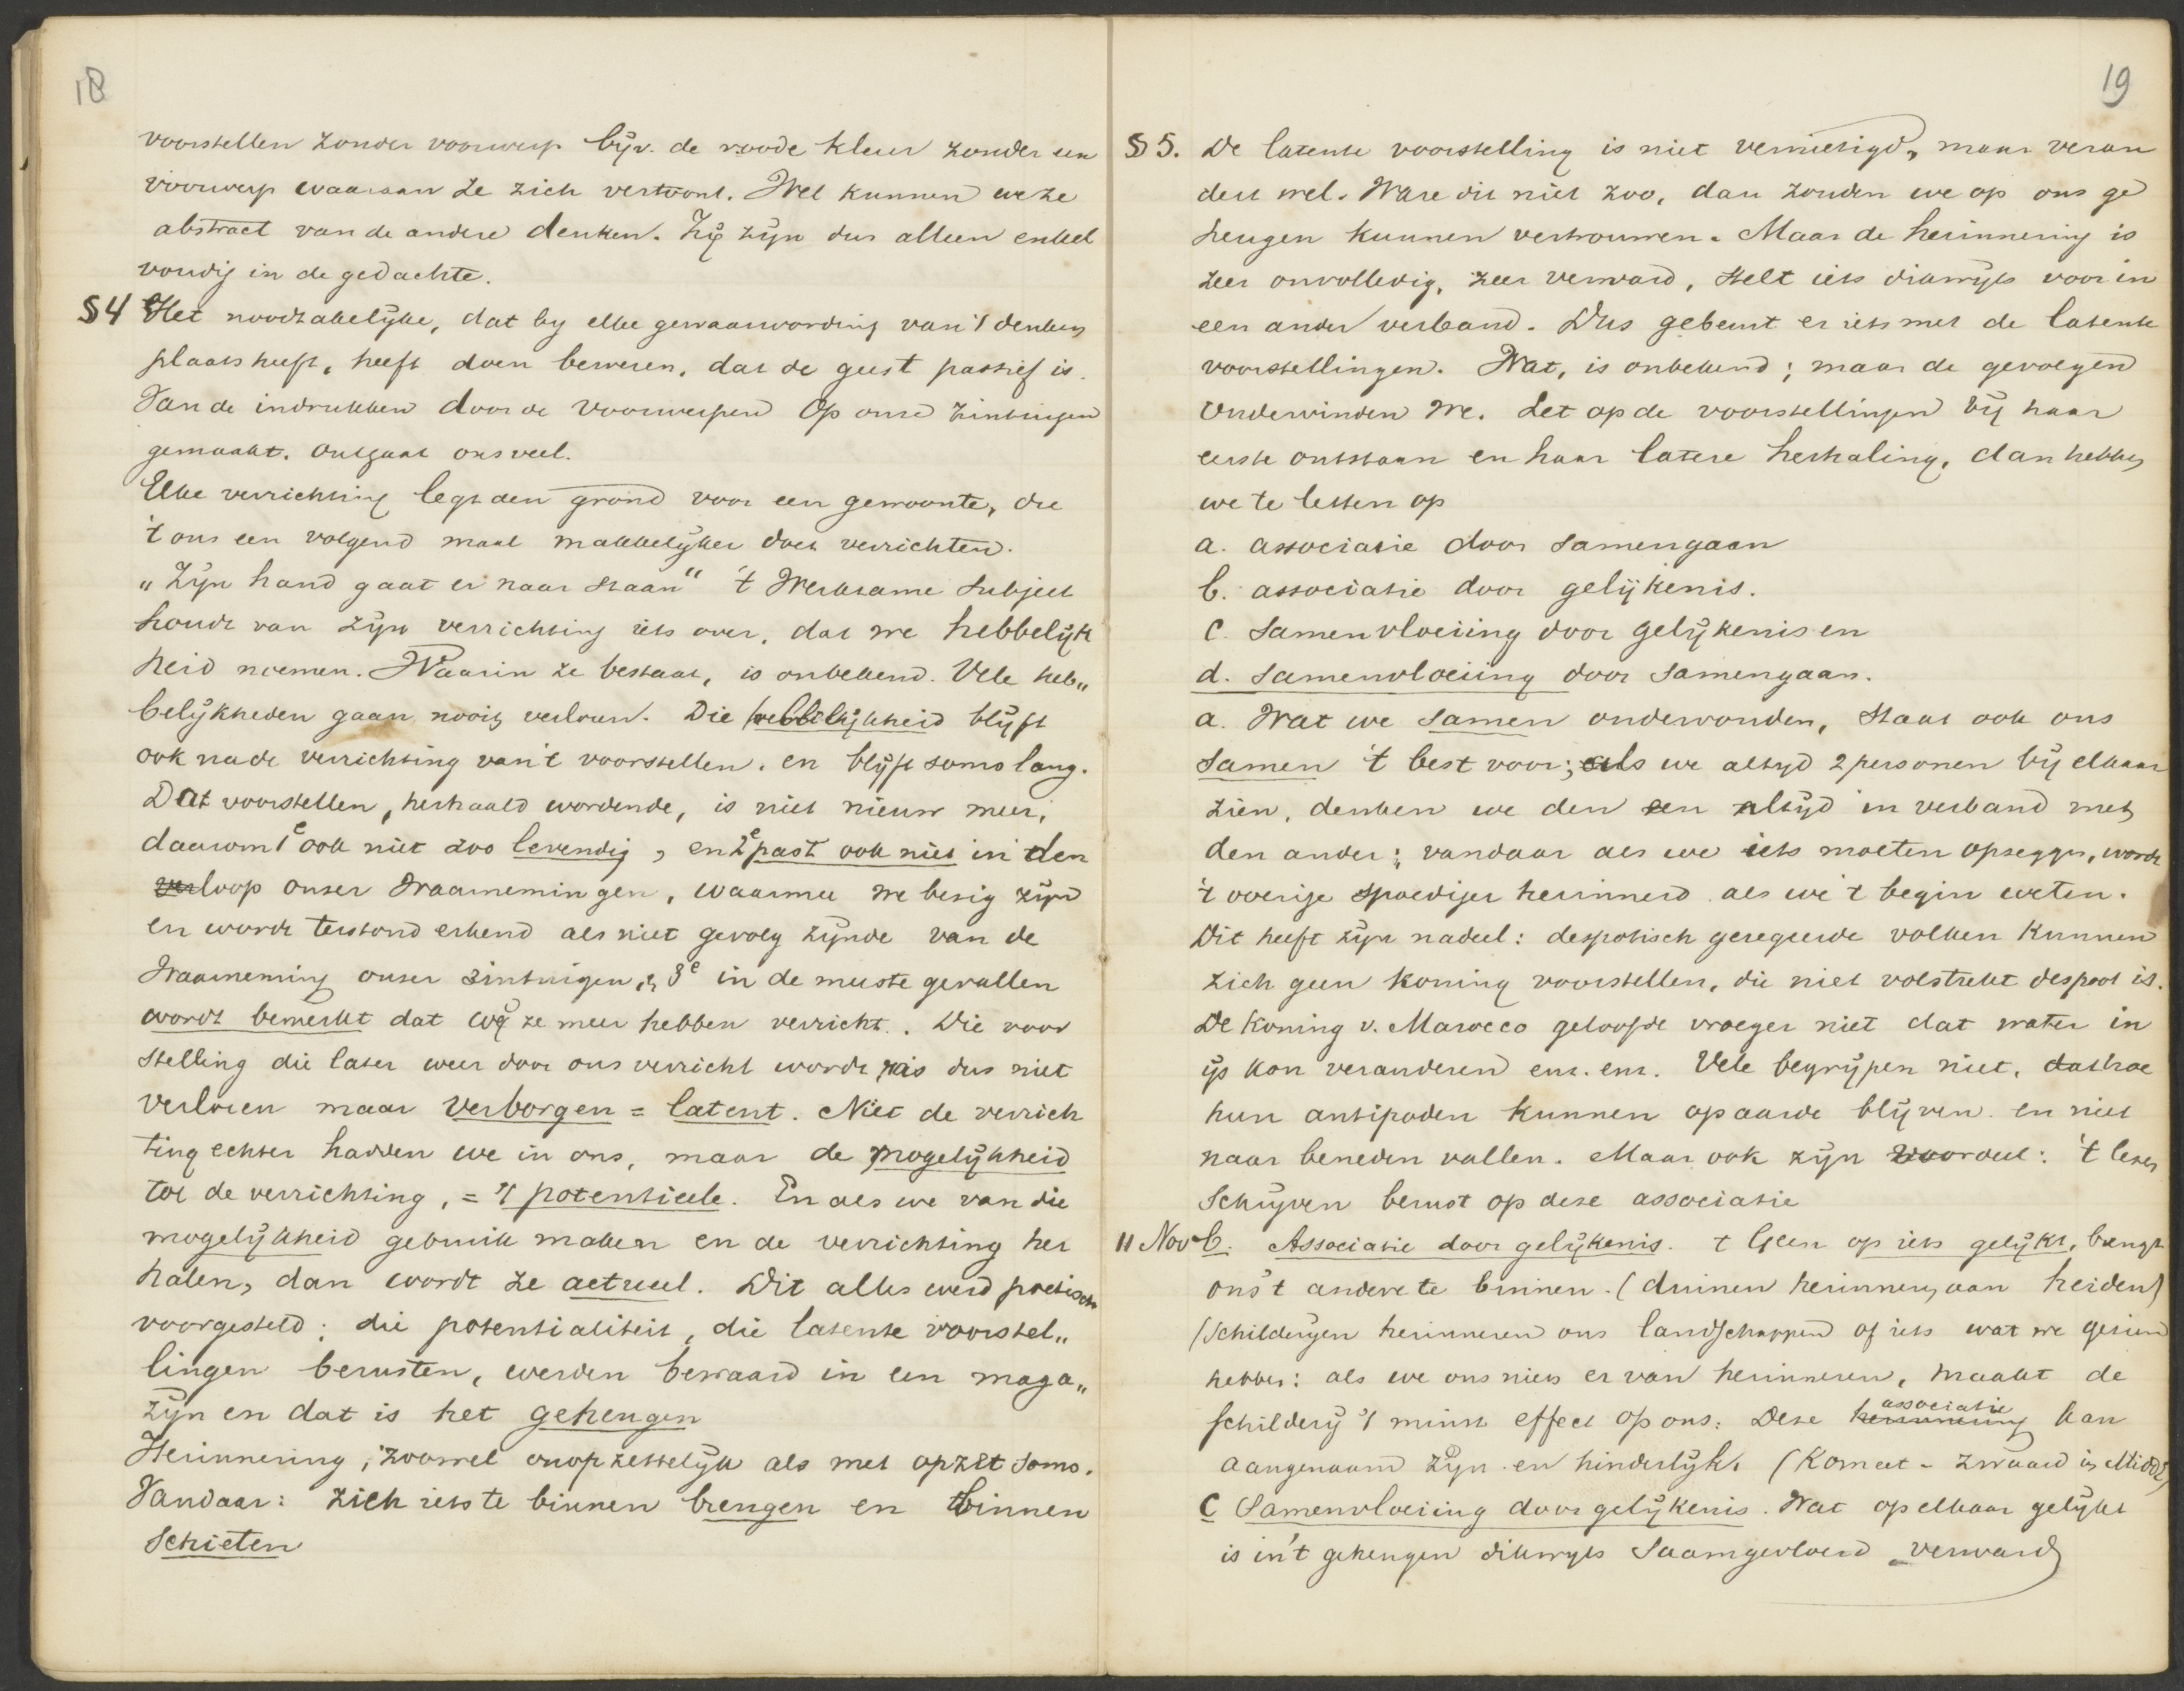 18
voorstellen zonder voorwerp bijv. de roode kleur zonder een
voorwerp waaraan ze zich vertoont. Wel kunnen we ze
abstract van de andere denken. Zij zijn dus alleen enkel
voudig in de gedachte.
§4 Het noodzakelijke, dat bij elke gewaarwording van 't denken
plaats heeft, heeft doen beweren, dat de geest passief is.
Van de indrukken door de voorwerpen op onze zintuigen
gemaakt, ontgaat ons veel.
Elke verrichting legt den grond voor een gewoonte, die
't ons een volgend maal makkelijker doet verrichten.
„Zijn hand gaat er naar staan" 't Werkzame subject
houdt van zijn verrichting iets over, dat we hebbelijk
heid noemen. Waarin ze bestaat, is onbekend. Vele heb„
belijkheden gaan nooit verloren. Die hebbelijkheid blijft
ook na de verrichting van 't voorstellen. en blijft soms lang.
Dat voorstellen, herhaald wordende, is niet nieuw meer,
daarom 1e ook niet zoo levendig, en 2e past ook niet in den
verloop onzer waarnemingen, waarmee we bezig zijn
en wordt terstond erkend als niet gevolg zijnde van de
waarneming onzer zintuigen, & 3e in de meeste gevallen
wordt bemerkt dat wij ze meer hebben verricht. Die voor
stelling die later weer door ons verricht wordt is dus niet
verloren maar verborgen = latent. Niet de verrich
ting echter hadden we in ons, maar de mogelijkheid
tot de verrichting, = 't potentieele. En als we van die
mogelijkheid gebruik maken en de verrichting her
halen, dan wordt ze actueel. Dit alles werd poetisch
voorgesteld: die potentialiteit, die latente voorstel„
lingen berusten, werden bewaard in een maga„
zijn en dat is het geheugen
Herinnering, zoowel onopzettelijk als met opzet soms.
Vandaar: zich iets te binnen brengen en binnen
schieten
19
§5. De latente voorstelling is niet vernietigd, maar veran
dert wel. Ware dit niet zoo, dan zouden we op ons ge
heugen kunnen vertrouwen. Maar de herinnering is
zeer onvolledig, zeer verward, stelt iets dikwijls voor in
een ander verband. Dus gebeurt er iets met de latente
voorstellingen. Wat, is onbekend; maar de gevolgen
ondervinden we. Let op de voorstellingen bij haar
eerste ontstaan en haar latere herhaling, dan hebben
we te letten op
a. associatie door samengaan
b. associatie door gelijkenis.
c. samenvloeiing door gelijkenis en
d. samenvloeiing door samengaan.
a. Wat we samen ondervonden, staat ook ons
samen 't best voor; als we altijd 2 personen bij elkaar
zien, denken we den een altijd in verband met
den ander; vandaar als we iets moeten opzeggen, wordt
't overige spoediger herinnerd als we 't begin weten.
Dit heeft zijn nadeel: despotisch geregeerde volken kunnen
zich geen koning voorstellen, die niet volstrekt despoot is.
De koning v. Marocco geloofde vroeger niet dat water in
ijs kon veranderen enz. enz. Vele begrijpen niet, dat hoe
hun antipoden kunnen op aarde blijven en niet
naar beneden vallen. Maar ook zijn voordeel: 't lezen
schrijven berust op deze associatie
11 Nov b. Associatie door gelijkenis. 't Geen op iets gelijkt, brengt
ons 't andere te binnen. (duinen herinneren aan heiden)
(schilderijen herinneren ons landschappen of iets wat we gezien
hebben: als we ons niets er van herinneren, maakt de
schilderij 't minst effect op ons. Deze herinnering associatie kan
aangenaam zijn en hinderlijk. (Komeet - zwaard in Midd)
c Samenvloeiing door gelijkenis. Wat op elkaar gelijkt
is in 't geheugen dikwijls saamgevloeid - verward